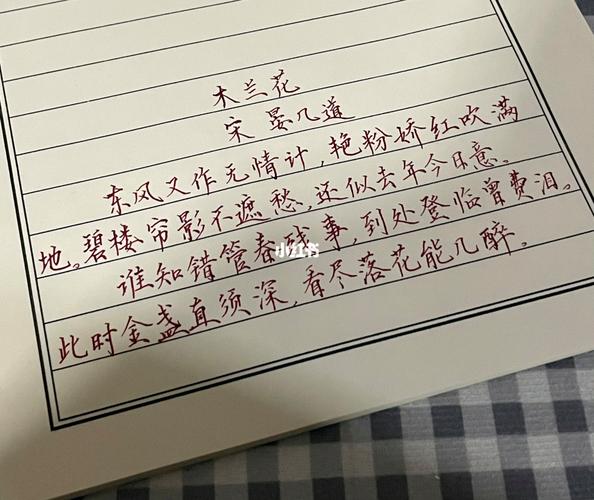 木兰花
宋 晏几道
东风又作无情计,艳粉娇红吹满
地。碧楼帘影不遮愁,还似去年今日意。
谁知错管春残事,到处登临曾费泪。
小红书
此时金盏直须深,看尽落花能几醉。